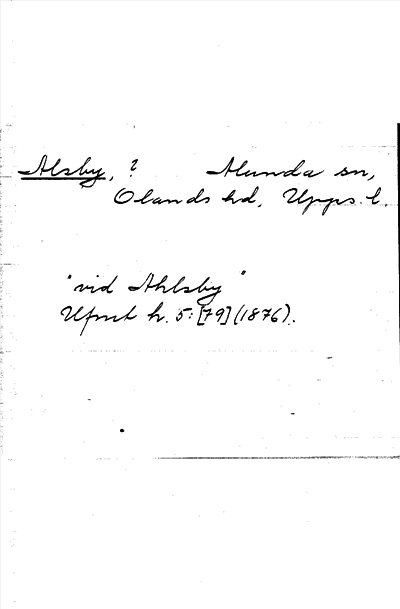 Alsby, ? Alunda sn,
Olands hd, Upps. l.
"vid Ahlsby"
Ufmt h. 5: [79] (1876).